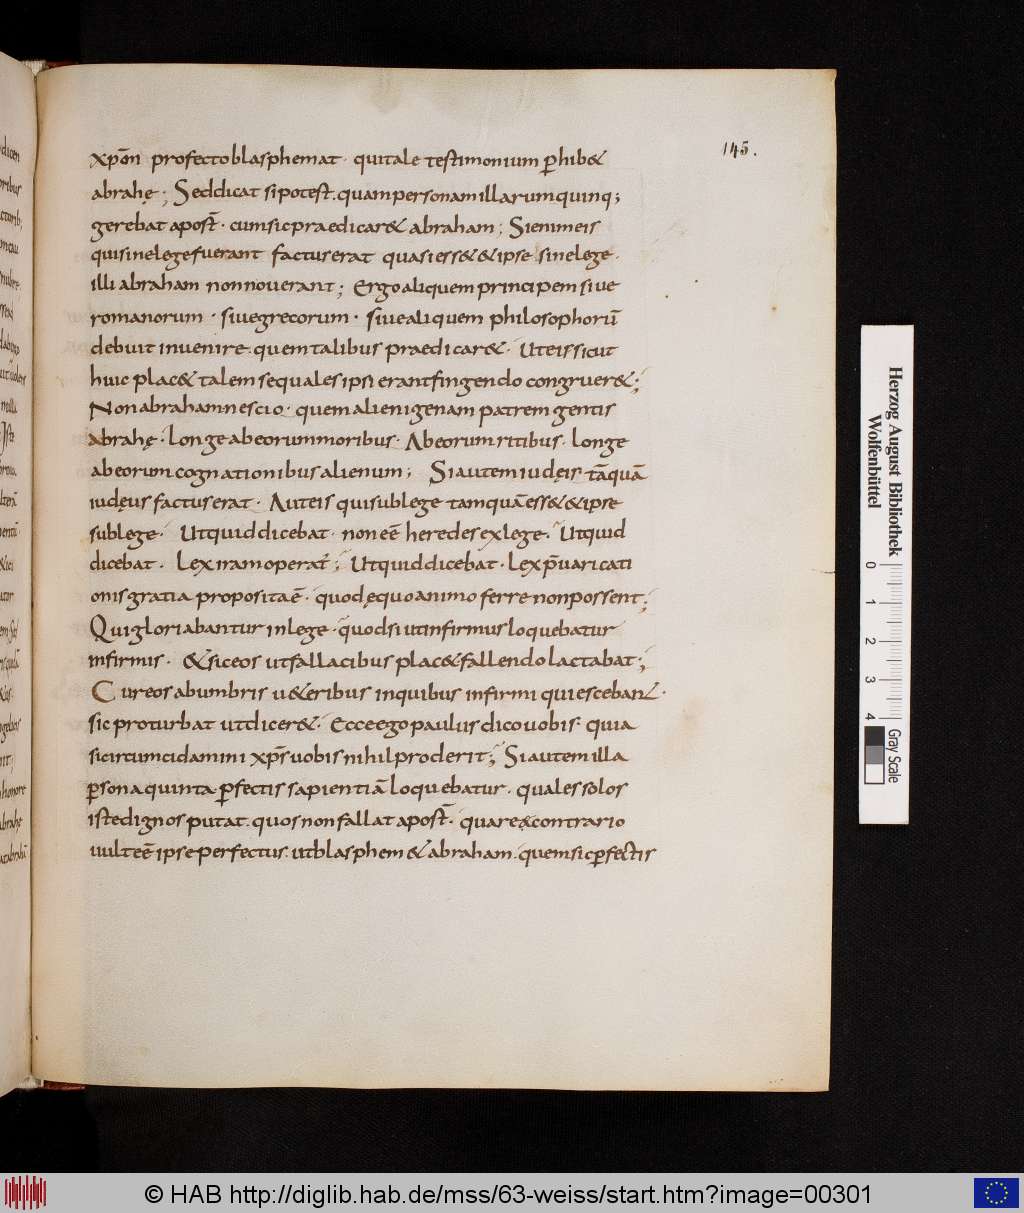 145.
xp̄m profecto blasphemat · qui tale testimonium ꝑhib&
abrahę ; Sed dicat si potest . quam personam illarum quinq;
gerebat apost̄ · cum sic praedicar& abraham ; Si enim eis
qui sine lege fuerant factus erat quasi ess& & ipse sine lege ·
illi abraham non noverant ; Ergo aliquem principem sive
romanorum · sive grecorum · sive aliquem philosophorū
debuit invenire . quem talibus praedicar& · Ut eis sicut
huic plac& talem se quales ipsi erant fingendo congruer& ;
Non abraham nescio · quem alienigenam patrem gentis
abrahę · longe ab eorum moribus · Ab eorum ritibus · longe
ab eorum cognationibus alienum ; Si autem iudęis tāquā
iudęus factus erat · Aut eis qui sub lege tamquā ess& & ipse
sub lege · Ut quid dicebat · non eē heredes ex lege · Ut quid
dicebat · Lex iram operat̄ ; Ut quid dicebat · lex p̄varicati
onis gratia proposita ē · quod ęquo animo ferre non possent ;
Qui gloriabantur in lege · quod si ut infirmus loquebatur
infirmis · & sic eos ut fallacibus plac& fallendo lactabat ;
Cur eos ab umbris u&eribus in quibus infirmi quiescebant ·
sic proturbat ut dicer& · Ecce ego paulus dico vobis · quia
si circumcidamini xp̄s vobis nihil proderit ; Si autem illa
ꝑsona quinta ꝑfectis sapientiā loquebatur · quales solos
iste dignos putat . quos non fallat apost̄ · quare ę contrario
vult eē ipse perfectus . ut blasphem& abraham . quem sic ꝑfectis
Herzog August Bibliothek
Wolfenbüttel
0 1 2 3 4
Gray Scale
© HAB http://diglib.hab.de/mss/63-weiss/start.htm?image=00301